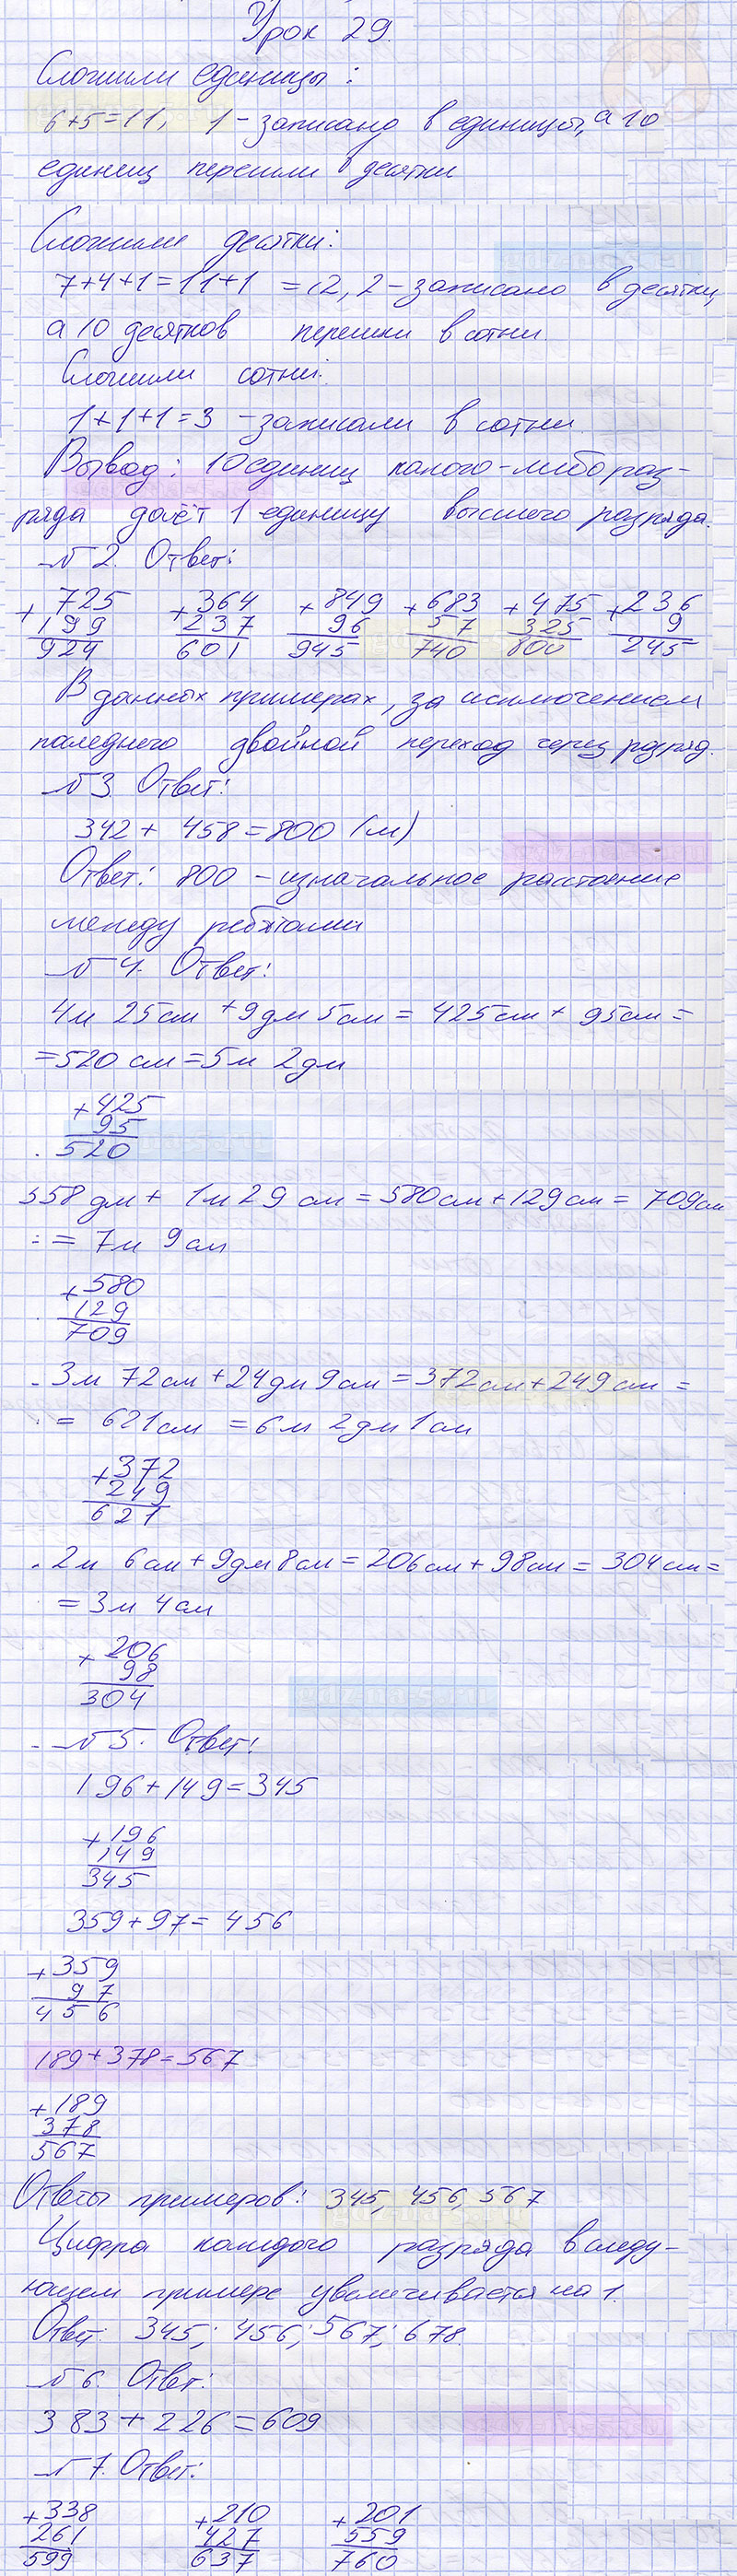 Урок 29.
Сложили единицы:
6+5=11, 1 - записано в единицы, а 10
единиц перешли в десятки
Сложили десятки:
7+4+1=11+1 =12, 2 - записано в десятки,
а 10 десятков перешли в сотни.
Сложили сотни:
1+1+1=3 - записали в сотни.
Вывод: 10 единиц какого-либо раз-
ряда даёт 1 единицу высшего разряда.
№ 2. Ответ:
+725 +364 +849 +683 +475 +236
199 237 96 57 325 9
924 601 945 740 800 245
В данных примерах, за исключением
последнего двойной переход через разряд.
№ 3. Ответ:
342 + 458 = 800 (м)
Ответ: 800 - изначальное расстояние
между ребятами
№ 4. Ответ:
4м 25см + 9дм 5см = 425см + 95см =
=520 см = 5м 2дм
+425
95
520
58 дм + 1м 29 см = 580см + 129см = 709см
= 7м 9см
+580
129
709
3м 72см + 24дм 9см = 372см + 249см =
= 621см = 6м 2дм 1см
+372
249
621
2м 6см + 9дм 8см = 206см + 98см = 304см =
= 3м 4см
+206
98
304
№ 5. Ответ:
196 + 149 = 345
+196
149
345
359 + 97 = 456
+359
97
456
189 + 378 = 567
+189
378
567
Ответы примеров: 345, 456, 567
Цифра каждого разряда в следу-
ющем примере увеличивается на 1.
Ответ: 345; 456; 567; 678.
№ 6. Ответ:
383 + 226 = 609
№ 7. Ответ:
+338 +210 +201
261 427 559
599 637 760